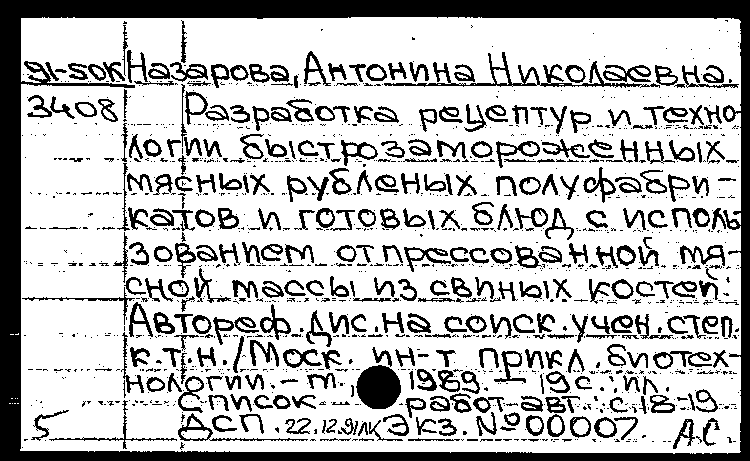 91-5ок Назарова, Антонина Николаевна.
3408 Разработка рецептур и техно-
логии быстрозамороженных
мясных рубленых полуфабри-
катов и готовых блюд с исполь
зованием отпрессованной мя-
сной массы из свиных костей:
Автореф. дис. на соиск. учен. степ.
к.т.н. / Моск. ин-т прикл. биотех-
нологии. - м., 1989. - 19 с.: ил.
Список работ авт.: с. 18-19
5 ДСП. 22.12.91лк Экз. № 00007. АС.